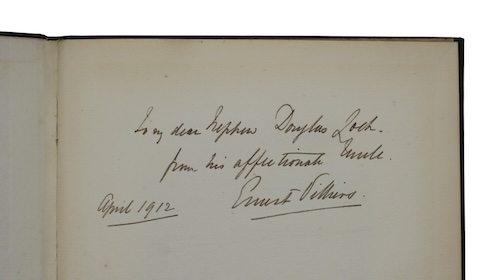 To my dear Nephew Douglas Loch.
from his affectionate Uncle.
April 1912 Ernest Villiers.